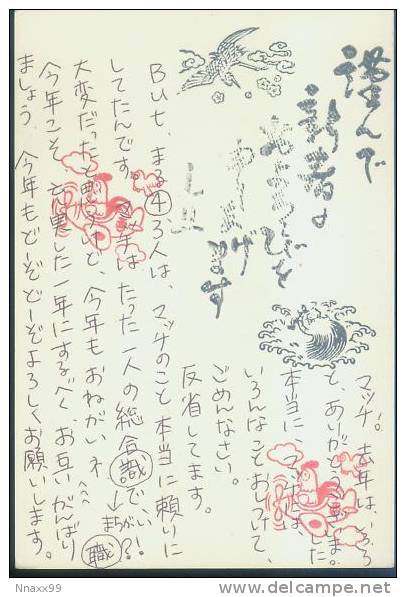 謹んで
新春の
およろこびを
申し上げ
ます
マッチ。去年は、いろいろ
と、ありがとうございま。
本当に、マッチには、
いろんなことおしつけて、
ごめんなさい。
反省してます。
But, まる4ろ人は、マッチのこと本当に頼りに
してたんです。今年はたった一人の総合識で、
→まちがい?! 職
大変だったと思うけど、今年もおねがいネ
今年こそ、充実した一年にするべく、お互いがんばり
ましょう 今年もどーぞどーぞよろしくお願いします。
Nnaxx99